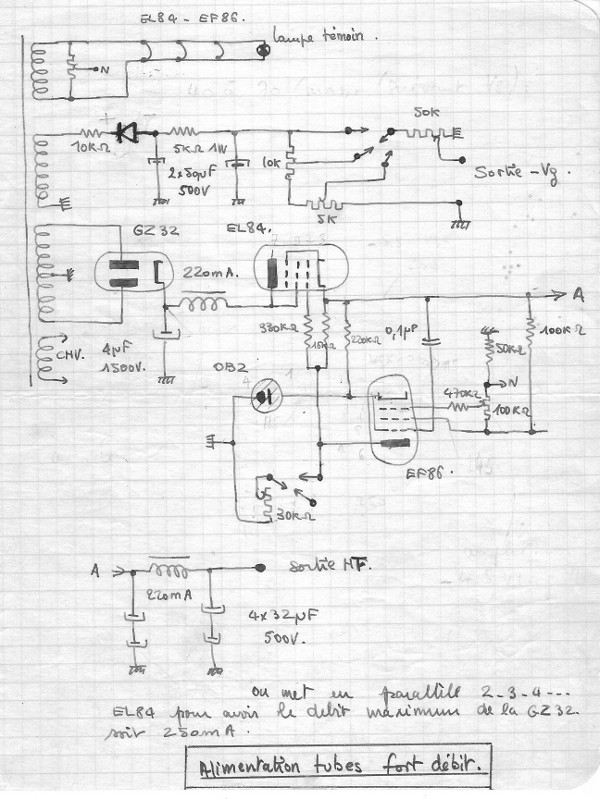 EL84 - EF86.
lampe témoin.
N
50K
10KΩ
5KΩ 1W
2x50µF
500V
10K
5K
Sortie -Vg.
GZ32
EL84.
220mA.
A
4µF
1500V.
CHV.
330KΩ
15KΩ
220KΩ
0,1µF
50KΩ
100KΩ
N
470KΩ
100KΩ
OB2
EF86.
30KΩ
A
220mA
sortie HT.
4x32µF
500V.
On met en parallèle 2-3-4---
EL84 pour avoir le debit maximum de la GZ32.
soit 250mA.
Alimentation tubes fort débit.